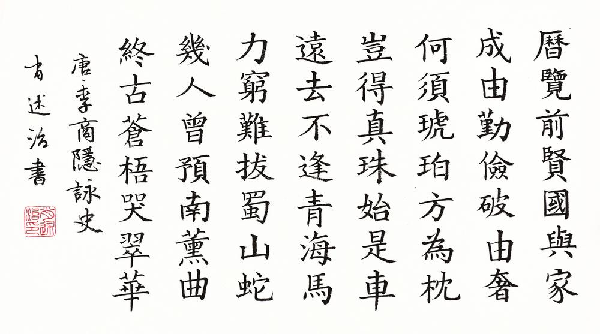 曆覽前賢國與家
成由勤儉破由奢
何須琥珀方為枕
豈得真珠始是車
遠去不逢青海馬
力窮難拔蜀山蛇
幾人曾預南薰曲
終古蒼梧哭翠華
唐·李商隱詠史
肖述治書